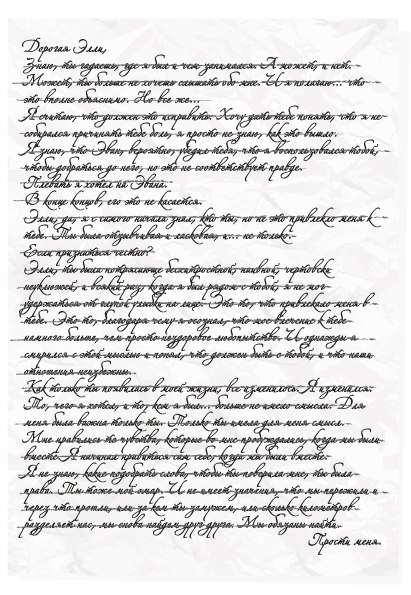 Дорогая Элли,
Знаю, ты гадаешь, где я был и чем занимался. А может, и нет.
Может, ты больше не хочешь слышать обо мне. И я полагаю... что
это вполне объяснимо. Но все же...
Я считаю, что должен это исправить. Хочу дать тебе понять, что я не
собирался причинять тебе боль, я просто не знаю, как это вышло.
Я знаю, что Эван, вероятно, убедил тебя, что я воспользовался тобой,
чтобы добраться до него, но это не соответствует правде.
Плевать я хотел на Эвана.
В конце концов, его это не касается.
Элли, да, я с самого начала знал, кто ты, но не это привлекло меня к
тебе. Ты была отзывчивая и ласковая, и... не только.
Если признаться честно?
Элли, ты была потрясающе бесхитростной, наивной, чертовски
неуклюжей, и всякий раз, когда я был рядом с тобой, я не мог
удержаться от глупой улыбки на мир. Это то, что привлекало меня в
тебе. Это то, благодаря чему я осознал, что мое влечение к тебе
намного больше, чем просто нездоровое любопытство. И однажды я
смирился с этой мыслью и понял, что должен быть с тобой, и что наши
отношения неизбежны.
Как только ты появилась в моей жизни, все изменилось. Я изменился.
То, чего я хотел, и то, кем я был... больше не имело смысла. Для
меня была важна только ты. Только ты имела для меня смысл.
Мне нравились те чувства, которые во мне пробуждались, когда мы были
вместе. Я начинал нравиться сам себе, когда мы были вместе.
Я не знаю, какие подобрать слова, чтобы ты поверила мне, ты была
права. Ты тоже мой омар. И не имеет значения, что мы пережили и
через что прошли, или за кем ты замужем, или сколько километров
разделяет нас, мы снова найдем друг друга. Мы обязаны найти.
Прости меня.